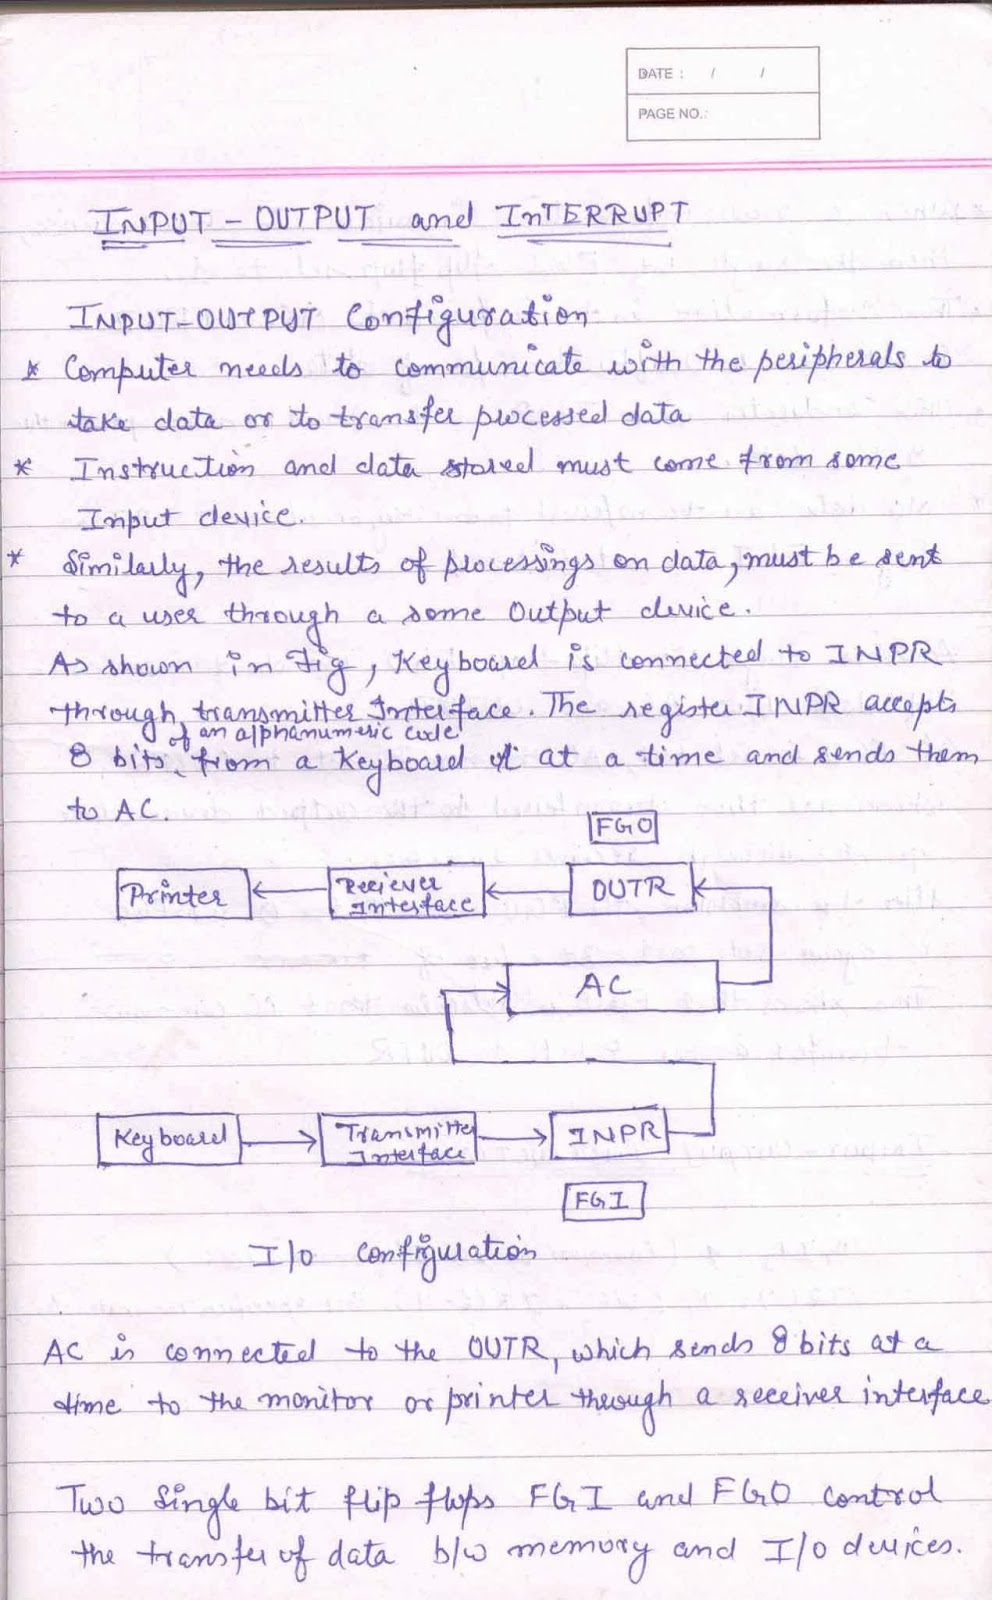 DATE : / /
PAGE NO.:
INPUT - OUTPUT and InTERRUPT
INPUT-OUTPUT Configuration
* Computer needs to communicate with the peripherals to
take data or to transfer processed data
* Instruction and data stored must come from some
Input device.
* Similarly, the results of processings on data, must be sent
to a user through a some Output device.
As shown in Fig, Keyboard is connected to INPR
through transmitter Interface. The register INPR accepts
of an alphanumeric code
8 bits from a Keyboard at a time and sends them
to AC.
FGO
Printer
Reciever
Interface
OUTR
AC
Keyboard
Transmitter
Interface
INPR
FGI
I/O Configuration
AC is connected to the OUTR, which sends 8 bits at a
time to the monitor or printer through a receiver interface
Two single bit flip flops FGI and FGO control
the transfer of data b/w memory and I/O devices.